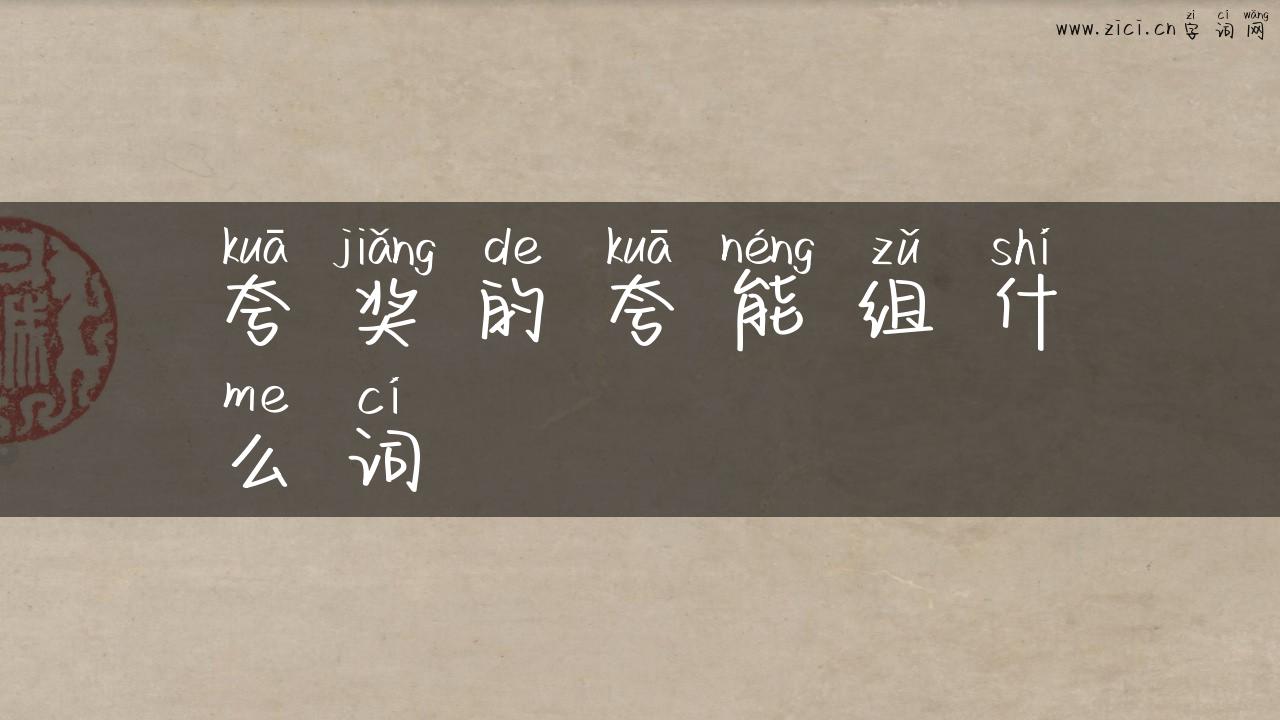 zì cí wǎng
www.zici.cn 字词网
kuā jiǎng de kuā néng zǔ shí
夸奖的夸能组什
me cí
么词